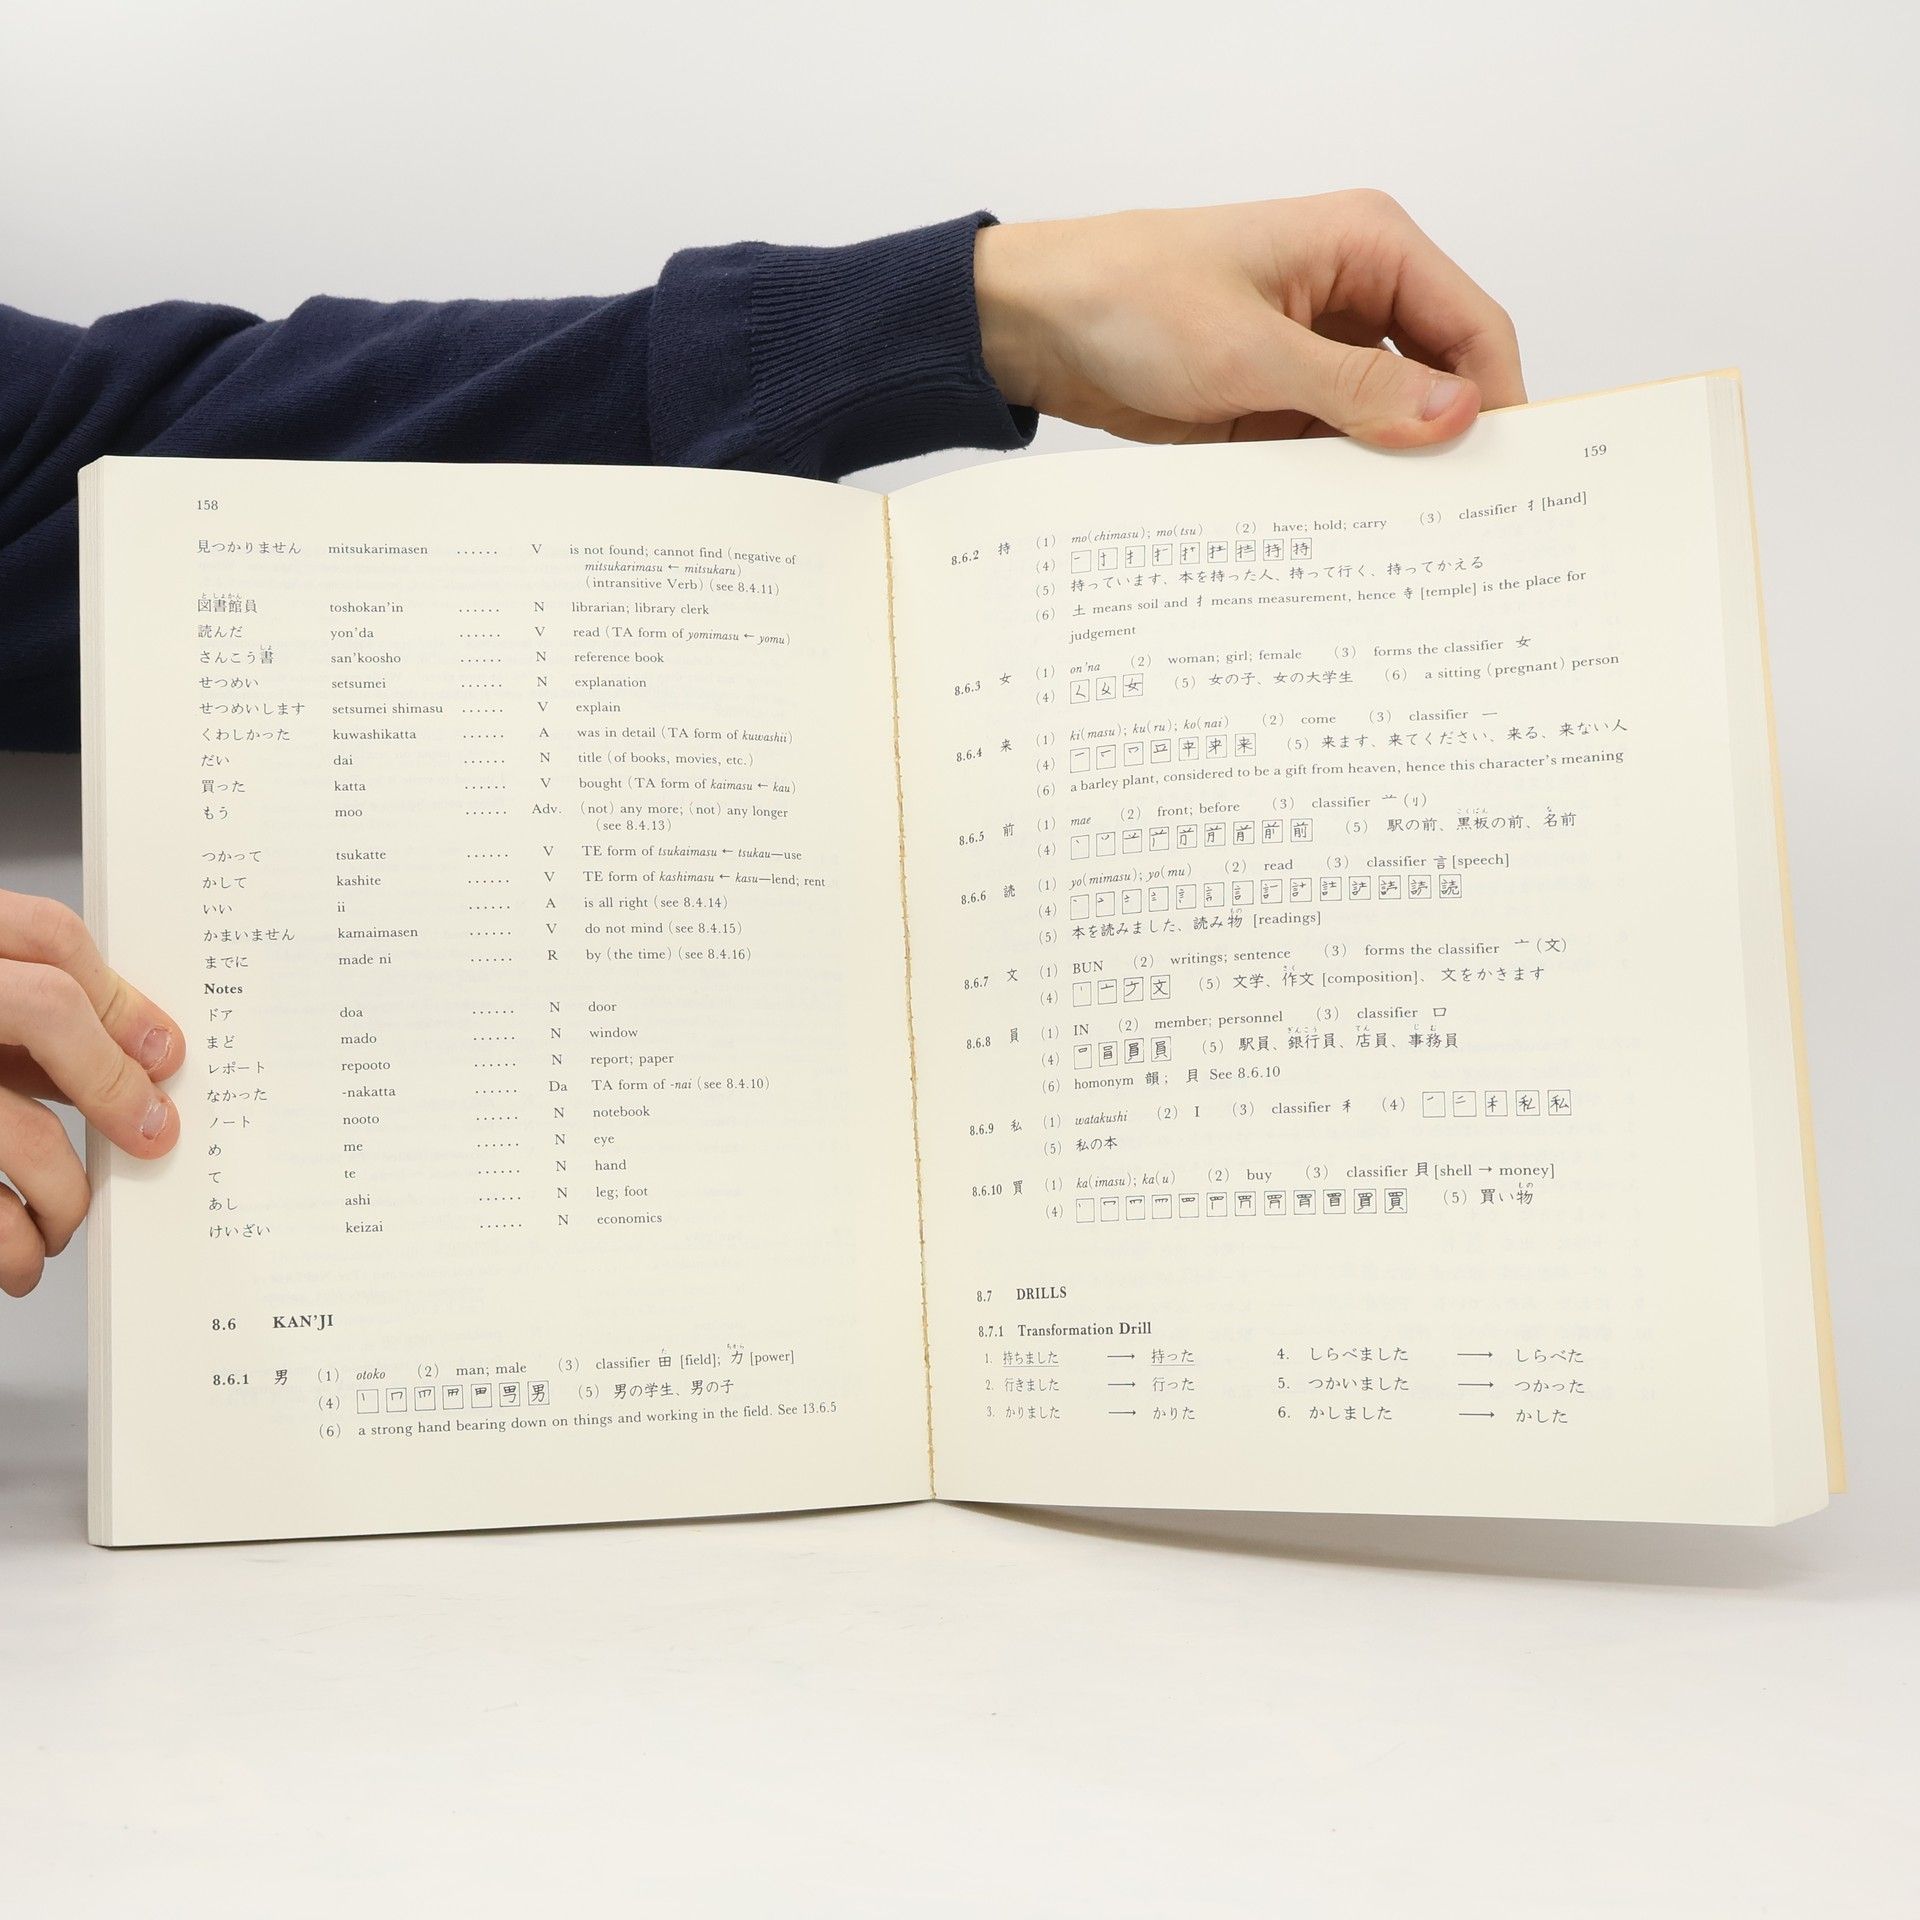 158
見つかりません mitsukarimasen ...... V is not found; cannot find (negative of
mitsukarimasu ← mitsukaru)
(intransitive Verb) (see 8.4.11)
としょかん
図書館員 toshokan'in ...... N librarian; library clerk
読んだ yon'da ...... V read (TA form of yomimasu ← yomu)
しょ
さんこう書 san'koosho ...... N reference book
せつめい setsumei ...... N explanation
せつめいします setsumei shimasu ...... V explain
くわしかった kuwashikatta ...... A was in detail (TA form of kuwashii)
だい dai ...... N title (of books, movies, etc.)
買った katta ...... V bought (TA form of kaimasu ← kau)
もう moo ...... Adv. (not) any more; (not) any longer
(see 8.4.13)
つかって tsukatte ...... V TE form of tsukaimasu ← tsukau—use
かして kashite ...... V TE form of kashimasu ← kasu—lend; rent
いい ii ...... A is all right (see 8.4.14)
かまいません kamaimasen ...... V do not mind (see 8.4.15)
までに made ni ...... R by (the time) (see 8.4.16)
Notes
ドア doa ...... N door
まど mado ...... N window
レポート repooto ...... N report; paper
なかった -nakatta ...... Da TA form of -nai (see 8.4.10)
ノート nooto ...... N notebook
め me ...... N eye
て te ...... N hand
あし ashi ...... N leg; foot
けいざい keizai ...... N economics
8.6 KAN'JI
た ちから
8.6.1 男 (1) otoko (2) man; male (3) classifier 田 [field]; 力 [power]
(4) 男 (5) 男の学生、男の子
(6) a strong hand bearing down on things and working in the field. See 13.6.5
159
8.6.2 持 (1) mo(chimasu); mo(tsu) (2) have; hold; carry (3) classifier 扌 [hand]
(4) 持 持
(5) 持っています、本を持った人、持って行く、持ってかえる
(6) 土 means soil and 扌 means measurement, hence 寺 [temple] is the place for
judgement
8.6.3 女 (1) on'na (2) woman; girl; female (3) forms the classifier 女
(4) 女 (5) 女の子、女の大学生 (6) a sitting (pregnant) person
8.6.4 来 (1) ki(masu); ku(ru); ko(nai) (2) come (3) classifier 一
(4) 来 (5) 来ます、来てください、来る、来ない人
(6) a barley plant, considered to be a gift from heaven, hence this character's meaning
8.6.5 前 (1) mae (2) front; before (3) classifier 䒑 (刂)
こくばん な
(4) 前 (5) 駅の前、黒板の前、名前
8.6.6 読 (1) yo(mimasu); yo(mu) (2) read (3) classifier 言 [speech]
(4) 読
もの
(5) 本を読みました、読み物 [readings]
8.6.7 文 (1) BUN (2) writings; sentence (3) forms the classifier 亠 (文)
さく
(4) 文 (5) 文学、作文 [composition]、文をかきます
8.6.8 員 (1) IN (2) member; personnel (3) classifier 口
ぎんこう てん じむ
(4) 員 (5) 駅員、銀行員、店員、事務員
(6) homonym 韻; 貝 See 8.6.10
8.6.9 私 (1) watakushi (2) I (3) classifier 禾 (4) 私 私
(5) 私の本
8.6.10 買 (1) ka(imasu); ka(u) (2) buy (3) classifier 貝 [shell → money]
もの
(4) 買 買 (5) 買い物
8.7 DRILLS
8.7.1 Transformation Drill
1. 持ちました → 持った 4. しらべました → しらべた
2. 行きました → 行った 5. つかいました → つかった
3. かりました → かりた 6. かしました → かした